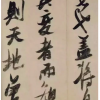 也蓋將自
其變者而觀
則天地曾